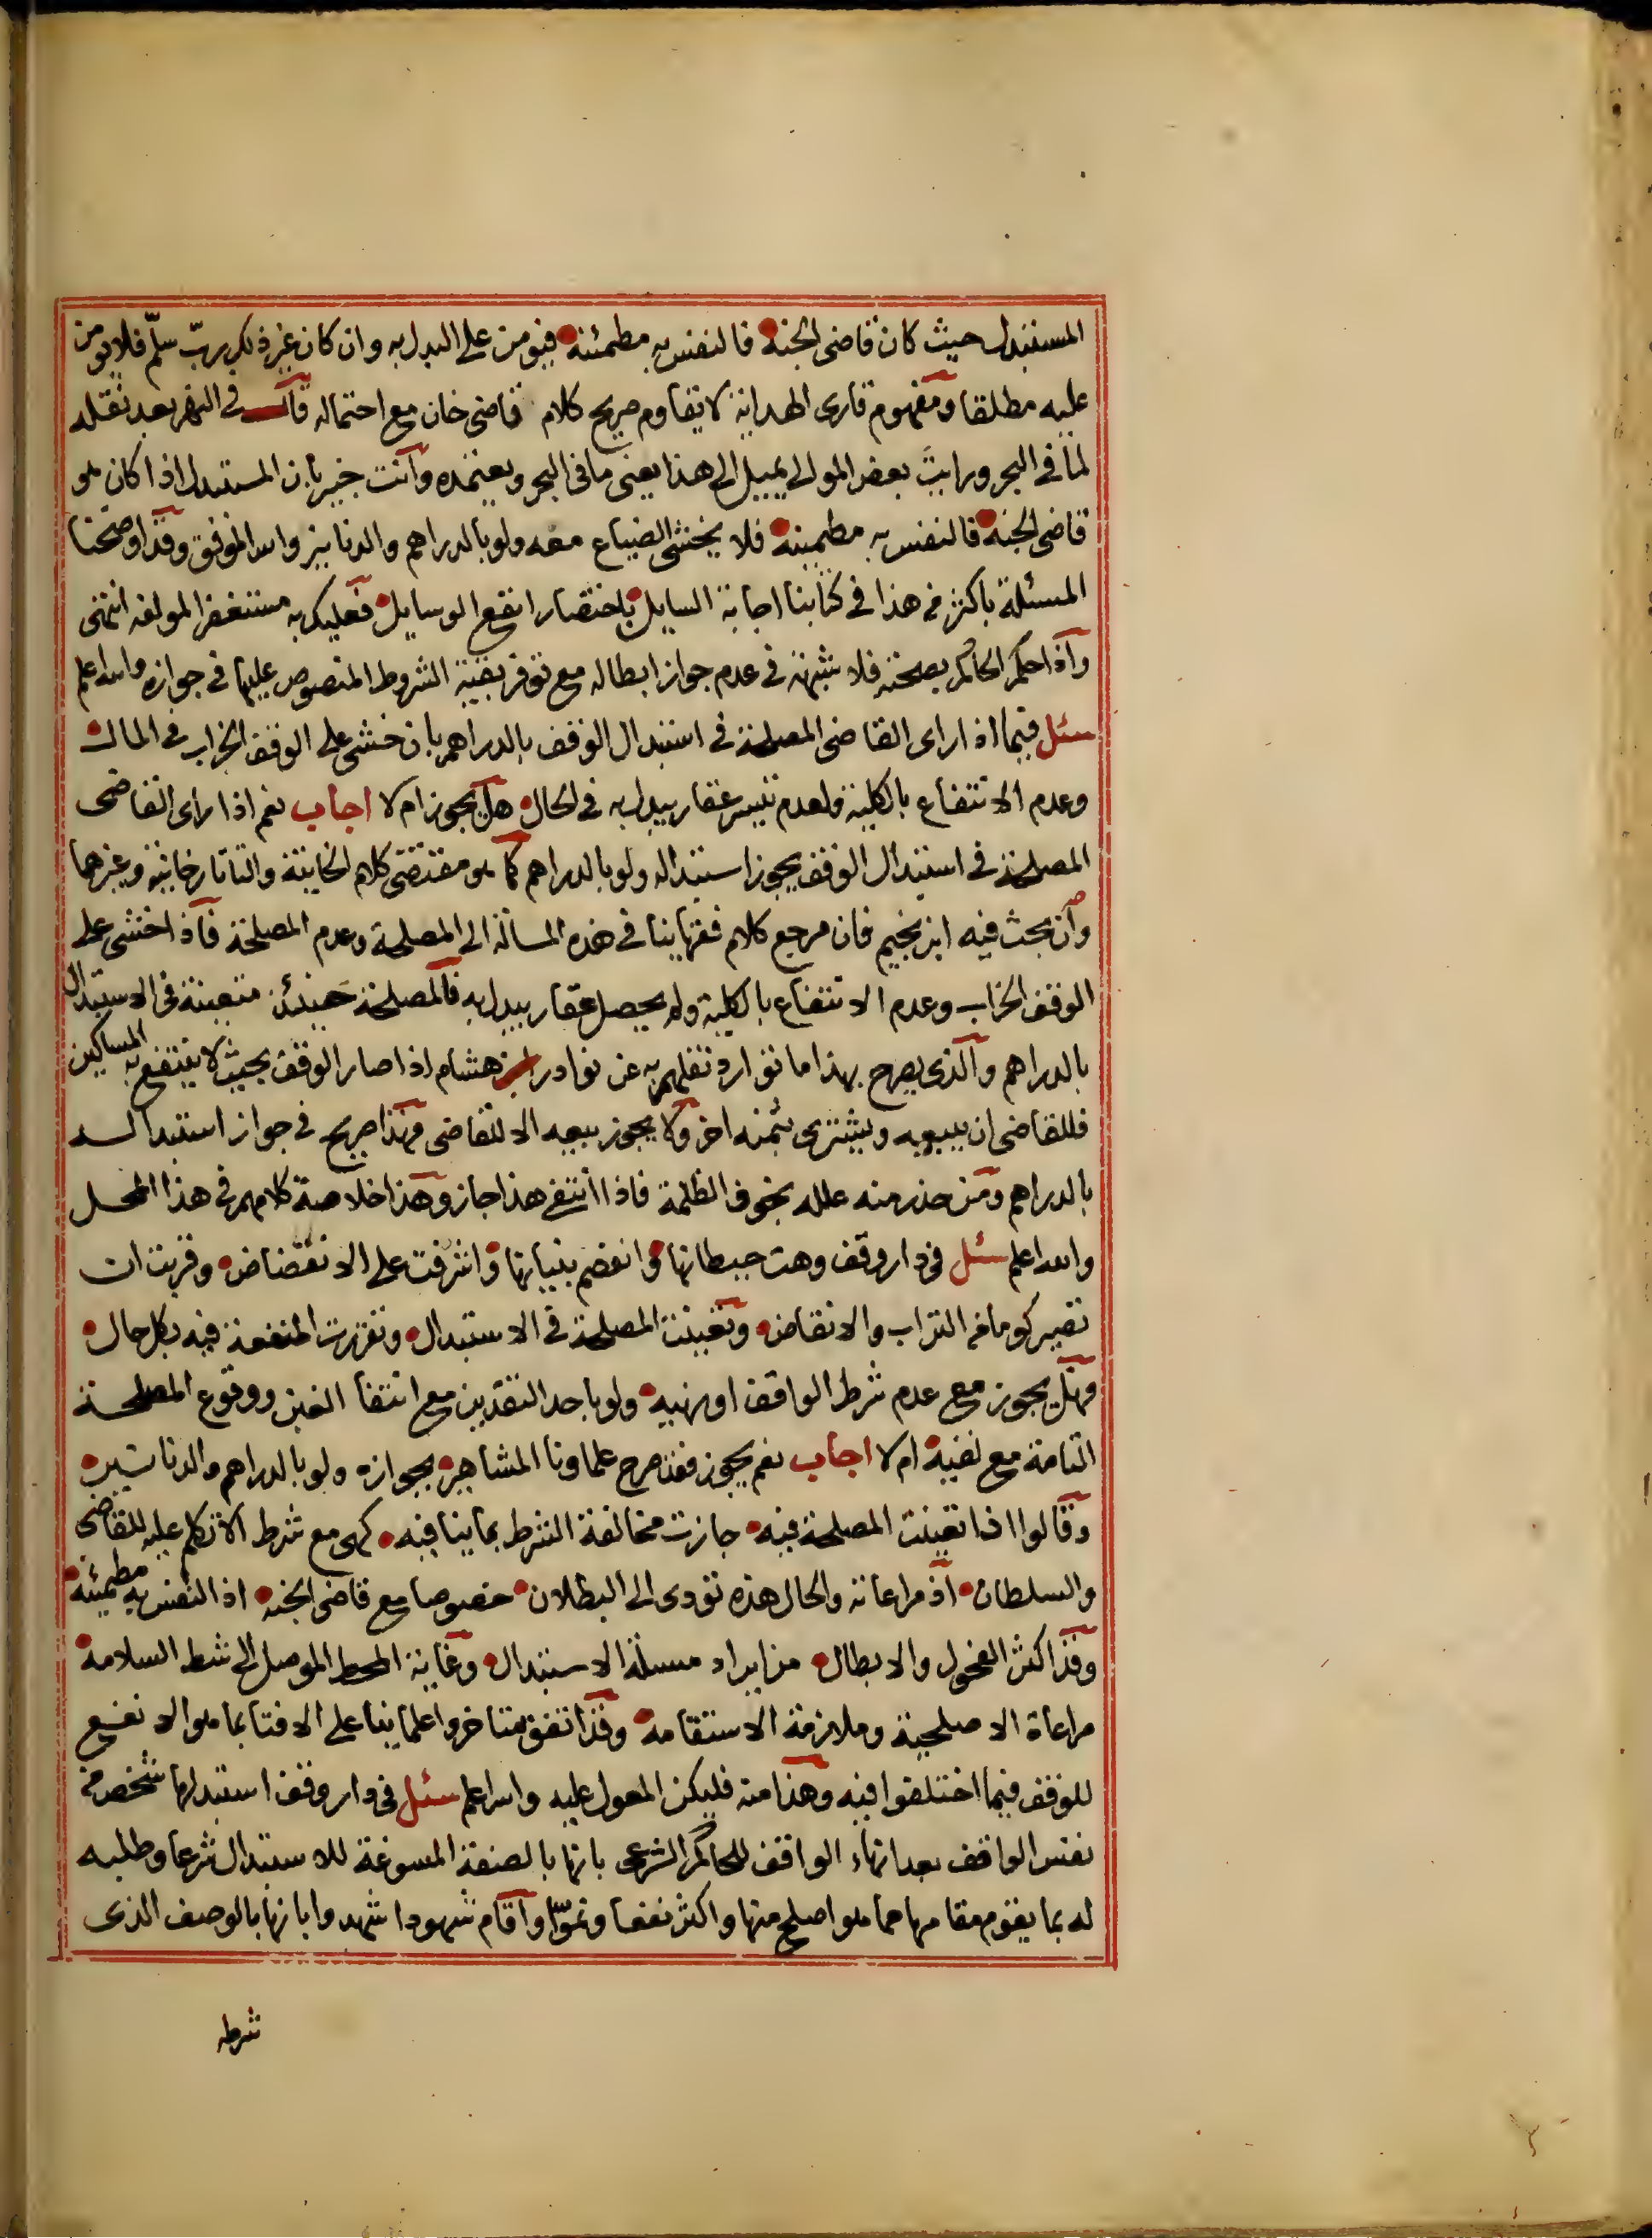 المستبدل حيث كان قاضى الجنة فالنفس به مطمئنة فيؤمن على البدل به وان كان غير ذلك رب سلم فلا يؤمن
عليه مطلقا ومفهوم قارى الهداية لا يقاوم صريح كلام قاضى خان مع احتماله قال فى النهر بعد نقله
لما فى البحر ورايت بعض الموالى يميل الى هذا يعنى ما فى البحر ويعتمده وانت خبير بان المستبدل اذا كان هو
قاضى الجنة فالنفس به مطمينة فلا يخشى الضياع معه ولو بالدراهم والدنانيز والله الموفق وقد اوضحنا
المسئلة باكثر من هذا فى كتابنا اجابة السايل باختصار انفع الوسايل فعليك به مستغفرا لمولفه انتهى
واذا حكم الحاكم بصحته فلا شبهة فى عدم جواز ابطاله مع توفر بقية الشروط المنصوص عليها فى جوازه والله اعلم
سئل فيما اذا راى القاضى المصلحة فى استبدال الوقف بالدراهم بان خشى على الوقف الخراب فى المال
وعدم الانتفاع بالكلية ولعدم تيسر عقار يبدل به فى الحال هل يجوز ام لا اجاب نعم اذا راى القاضى
المصلحة فى استبدال الوقف يجوز استبداله ولو بالدراهم كما هو مقتضى كلام الخانية والتاتارخانية وغيرهما
وان بحث فيه ابن نجيم فان مرجع كلام فقهاينا فى هذه المسالة الى المصلحة وعدم المصلحة فاذا خشى على
الوقف الخراب وعدم الانتفاع بالكلية ولم يحصل عقار يبدل به فالمصلحة حينئذ متعينة فى الاستبدال
بالدراهم والذى يصرح بهذا ما توارد نقلهم به عن نوادر هشام اذا صار الوقف بحيث لا ينتفع به المساكين
فللقاضى ان يبيعه ويشترى بثمنه اخر ولا يجوز بيعه الا للقاضى فهذا صريح فى جواز استبداله
بالدراهم ومن حذر منه علله بخوف الظلمة فاذا انتفى هذا جاز وهذا خلاصة كلامهم فى هذا المحل
والله اعلم سئل فى دار وقف وهت حيطانها وانفصم بنيانها واشرفت على الانقضاض وقربت ان
تصير كوما من التراب والانقاض وتعينت المصلحة فى الاستبدال وتقررت المنفعة فيه بكل حال
فهل يجوز مع عدم شرط الواقف او نهيه ولو باحد النقدين مع انتفا الغبن ووقوع المصلحة
التامة مع نفيه ام لا اجاب نعم يجوز فقد صرح علماونا المشاهير بجوازه ولو بالدراهم والدنانير
وقالوا اذا تعينت المصلحة فيه جازت مخالفة الشرط بما ينافيه كهى مع شرط الا تكلم عليه للقاضى
والسلطان اذ مراعاته والحال هذه تؤدى الى البطلان خصوصا مع قاضى الجنة اذ النفس به مطمئنة
وقد اكثر الفحول والابطال من ايراد مسئلة الاستبدال وغاية المحط الموصل الى شط السلامة
مراعاة الاصلحية وملازمة الاستقامة وقد اتفق متاخروا علماينا على الافتا بما هو الانفع
للوقف فيما اختلفوا فيه وهذا منه فليكن المعول عليه والله اعلم سئل فى دار وقف استبدلها شخص من
نفس الواقف بعد انهاء الواقف للحاكم الشرعى بانها بالصفة المسوغة للاستبدال شرعا وطلبه
له بما يقوم مقامها مما هو اصلح منها واكثر نفعا ونموا واقام شهودا شهدوا بانها بالوصف الذى
شرطه